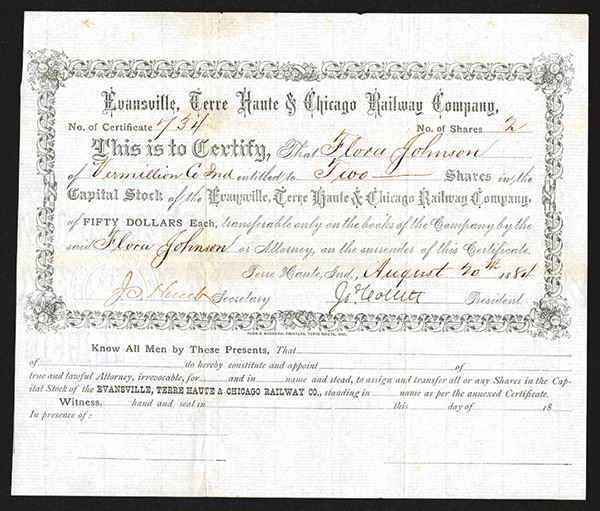 Evansville, Terre Haute & Chicago Railway Company,
No. of Certificate 734 No. of Shares 2
This is to Certify, That Flora Johnson
of Vermillion Co Ind entitled to Two Shares in the
Capital Stock of the Evansville, Terre Haute & Chicago Railway Company,
of FIFTY DOLLARS Each, transferable only on the books of the Company by the
said Flora Johnson or Attorney, on the surrender of this Certificate.
Terre Haute, Ind, August 20th 1884
Secretary President
Know All Men by These Presents, That
of do hereby constitute and appoint of
true and lawful Attorney, irrevocable, for and in name and stead, to assign and transfer all or any Shares in the Cap-
ital Stock of the EVANSVILLE, TERRE HAUTE & CHICAGO RAILWAY CO., standing in name as per the annexed Certificate.
Witness, hand and seal in this day of 18
In presence of: